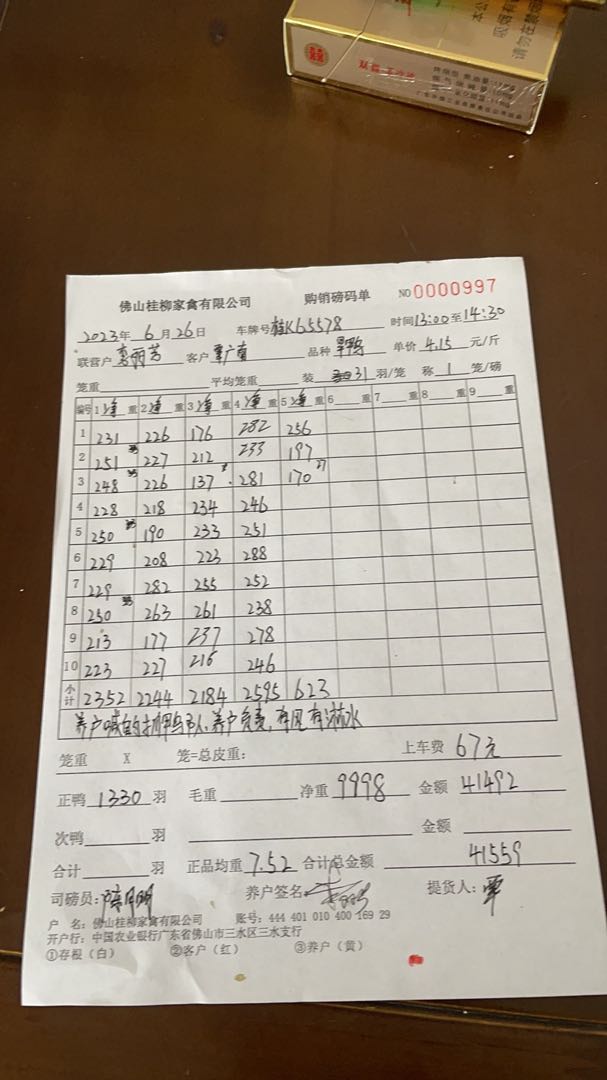 请勿在禁烟
吸烟有
本公
双喜
佛山桂柳家禽有限公司 购销磅码单 NO 0000997
2023年 6 月 26 日 车牌号 桂K65578 时间13:00至14:30
联营户 客户 覃广南 品种 单价 4.15 元/斤
笼重 平均笼重 装 31 羽/笼 称 1 笼/磅
编号 1 净 重 2 净 重 3 净 重 4 净 重 5 净 重 6 重 7 重 8 重 9 重
1 231 226 176 232 256
2 251 227 212 233 197
3 248 226 137 281 170 27
4 228 218 234 246
5 250 190 233 251
6 229 208 223 288
7 229 282 255 252
8 250 263 261 238
9 213 177 237 278
10 223 227 216 246
小计 2352 2244 2184 2595 623
养户喊 养户负责,有风有淋水
笼重 X 笼=总皮重: 上车费 67元
正鸭 1330 羽 毛重 净重 9998 金额 41492
次鸭 羽 金额
合计 羽 正品均重 7.52 合计总金额 41559
司磅员: 养户签名 提货人: 覃
户 名: 佛山桂柳家禽有限公司 账号: 444 401 010 400 169 29
开户行: 中国农业银行广东省佛山市三水区三水支行
①存根(白) ②客户(红) ③养户(黄)